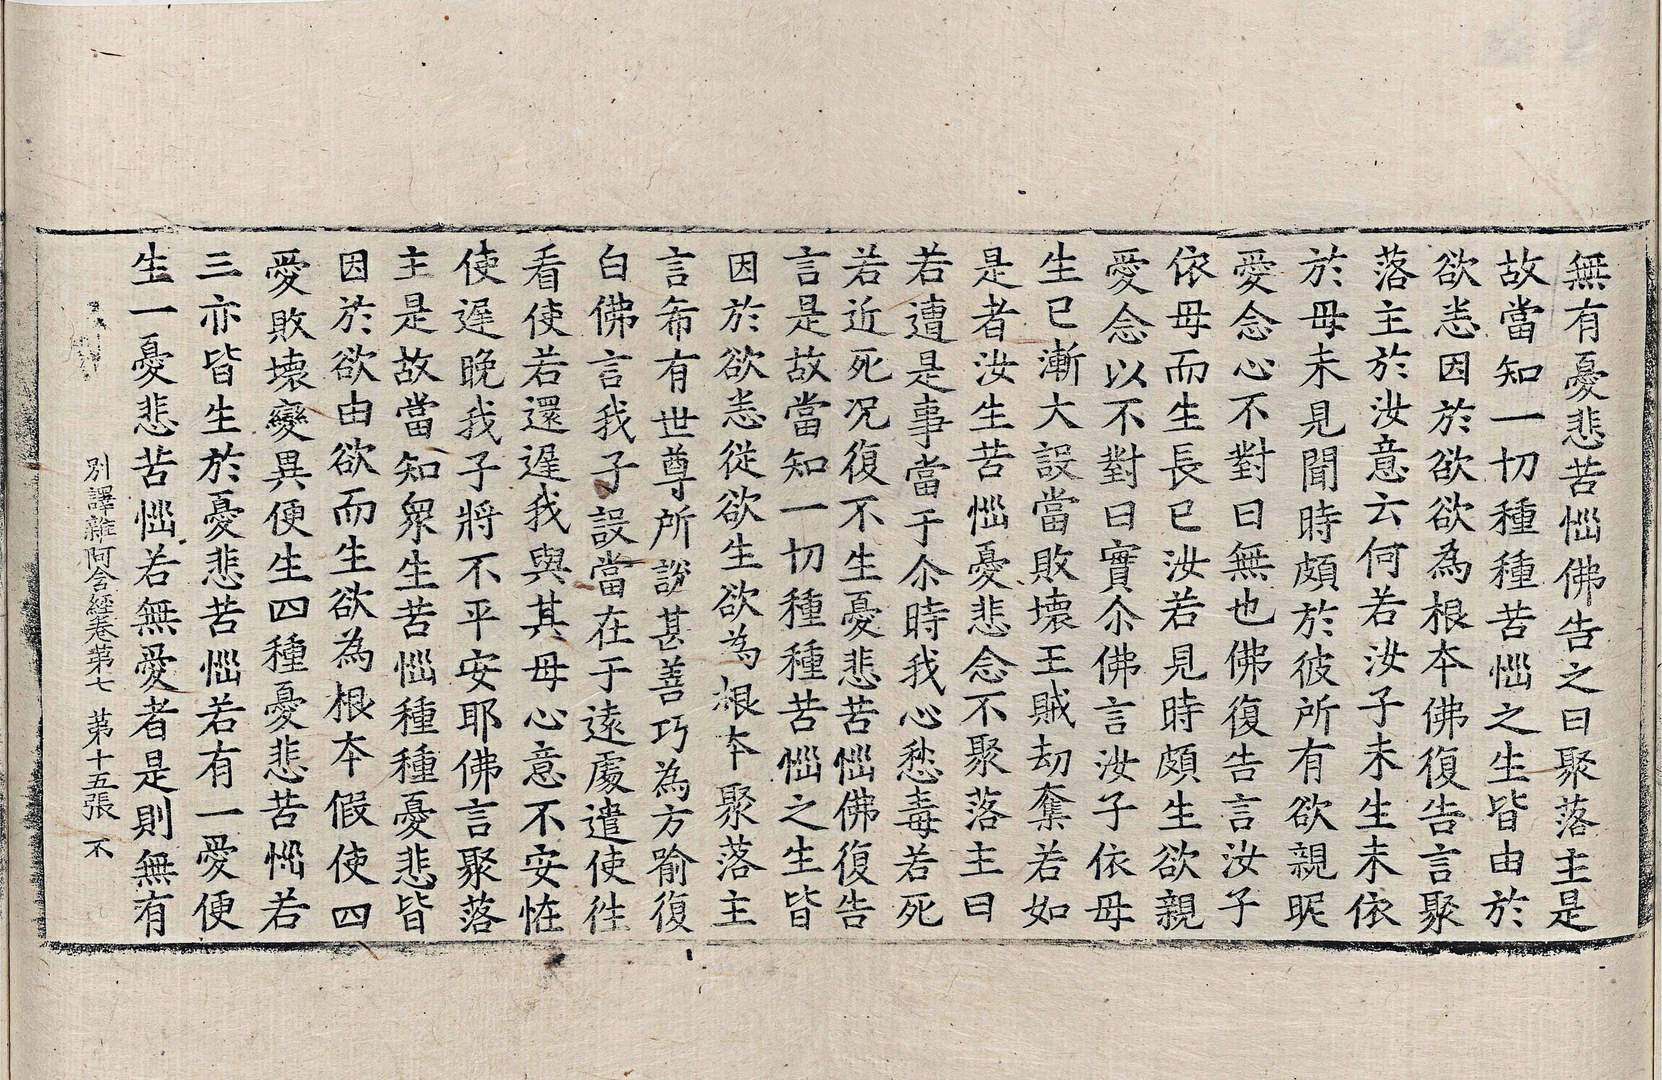 無有憂悲苦惱佛告之曰聚落主是
故當知一切種種苦惱之生皆由於
欲悉因於欲欲為根本佛復告言聚
落主於汝意云何若汝子未生未依
於母未見聞時頗於彼所有欲親昵
愛念心不對曰無也佛復告言汝子
依母而生長已汝若見時頗生欲親
愛念以不對曰實尒佛言汝子依母
生已漸大設當敗壞王賊劫奪若如
是者汝生苦惱憂悲念不聚落主曰
若遭是事當于尒時我心愁毒若死
若近死况復不生憂悲苦惱佛復告
言是故當知一切種種苦惱之生皆
因於欲悉從欲生欲為根本聚落主
言希有世尊所說甚善巧為方喻復
白佛言我子設當在于遠處遣使往
看使若還遲我與其母心意不安恠
使遲晚我子將不平安耶佛言聚落
主是故當知衆生苦惱種種憂悲皆
因於欲由欲而生欲為根本假使四
愛敗壞變異便生四種憂悲苦惱若
三亦皆生於憂悲苦惱若有一愛便
生一憂悲苦惱若無愛者是則無有
別譯雜阿含經卷第七 第十五張 不